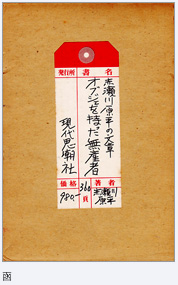 書名
赤瀬川原平の文章
オブジェを持った無産者
発行所
現代思潮社
著者
赤瀬川
原平
360頁
価格
980.-
函